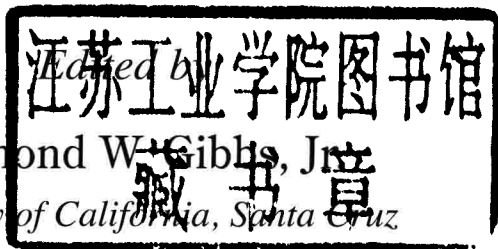 江苏工业学院图书馆
Edited by
mond W. Gibbs, Jr.
藏书章
of California, Santa Cruz